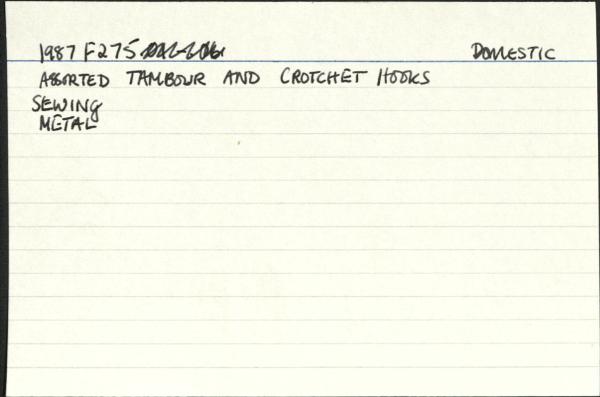 1987 F275 DOMESTIC
ASSORTED TAMBOUR AND CROTCHET HOOKS
SEWING
METAL